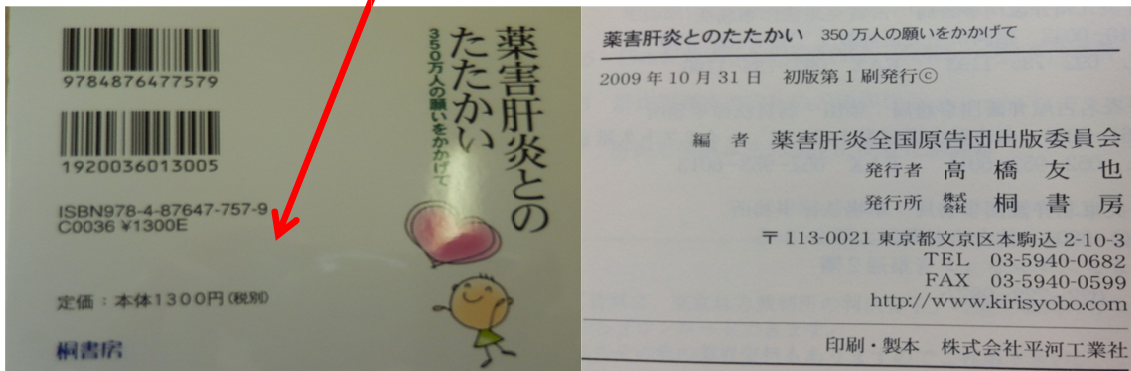 9784876477579
1920036013005
ISBN978-4-87647-757-9
C0036 ¥1300E
定価：本体1300円(税別)
桐書房
薬害肝炎との
たたかい
350万人の願いをかかげて
薬害肝炎とのたたかい 350万人の願いをかかげて
2009年10月31日 初版第1刷発行©
編者 薬害肝炎全国原告団出版委員会
発行者 高橋友也
発行所 株式会社 桐書房
〒113-0021 東京都文京区本駒込2-10-3
TEL 03-5940-0682
FAX 03-5940-0599
http://www.kirisyobo.com
印刷・製本 株式会社平河工業社